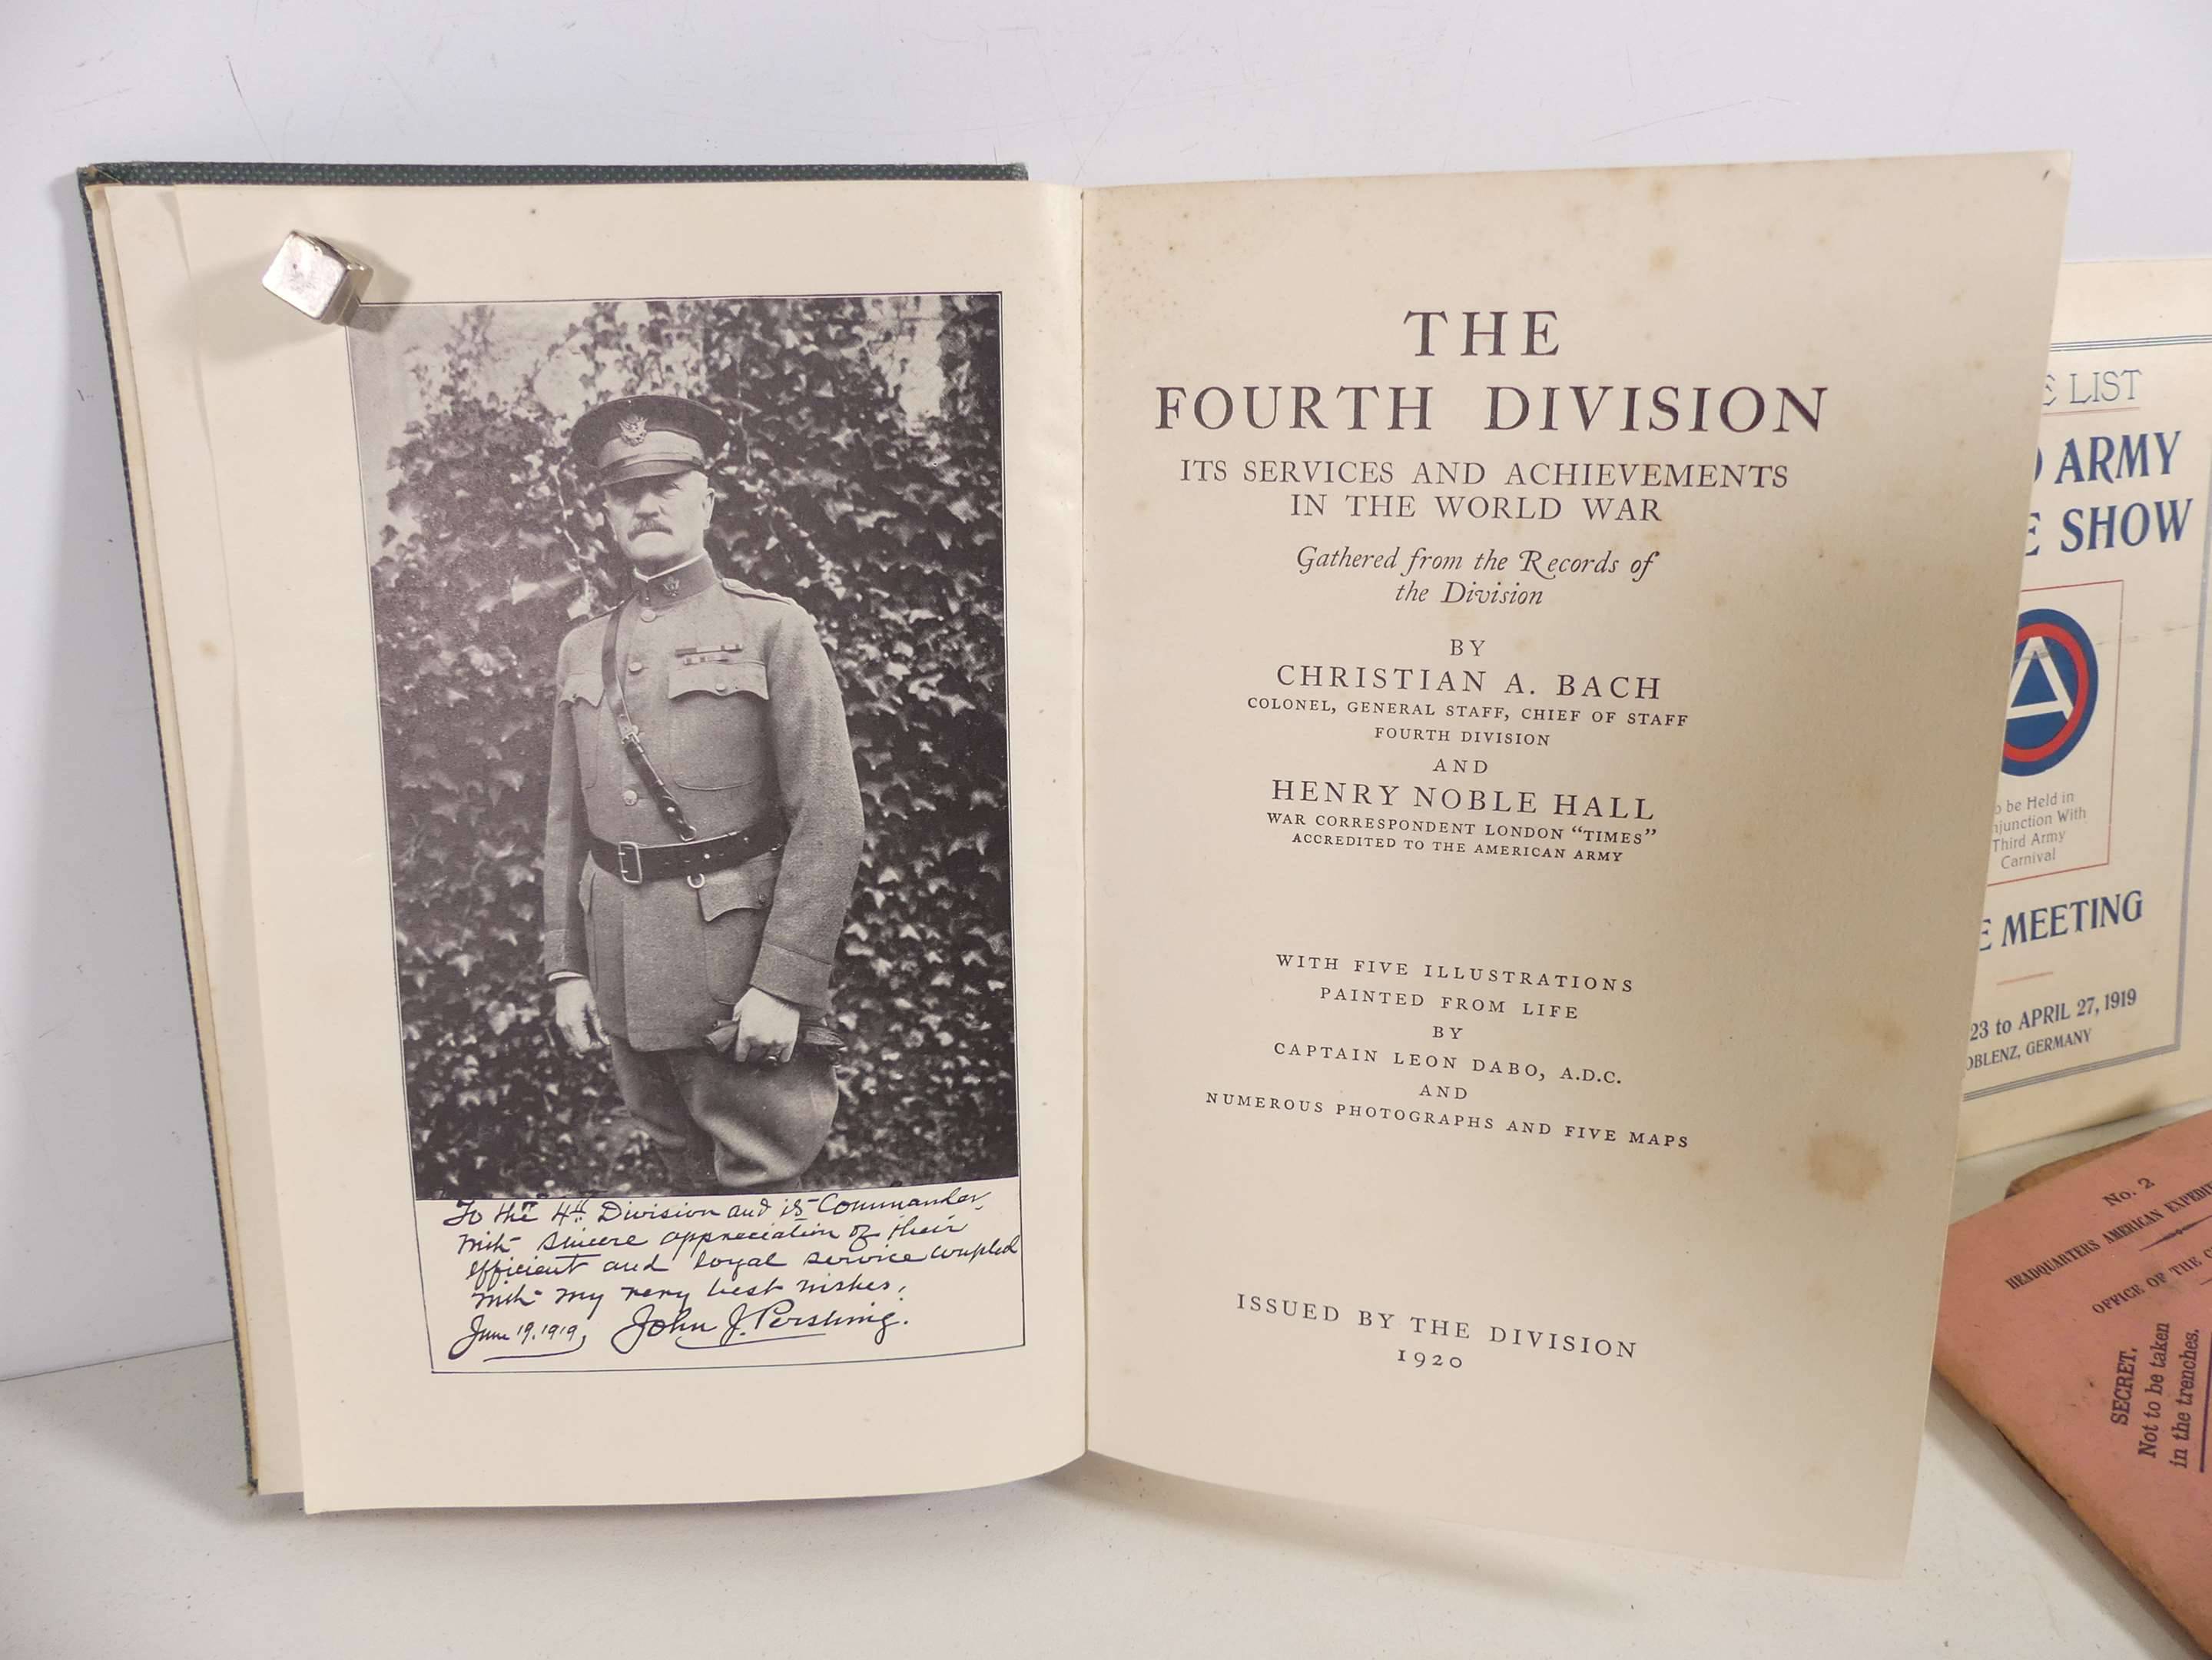 To the 4th Division and its Commander,
with sincere appreciation of their
efficient and loyal service coupled
with my very best wishes,
June 19, 1919, John J. Pershing.
THE
FOURTH DIVISION
ITS SERVICES AND ACHIEVEMENTS
IN THE WORLD WAR
Gathered from the Records of
the Division
BY
CHRISTIAN A. BACH
COLONEL, GENERAL STAFF, CHIEF OF STAFF
FOURTH DIVISION
AND
HENRY NOBLE HALL
WAR CORRESPONDENT LONDON “TIMES”
ACCREDITED TO THE AMERICAN ARMY
WITH FIVE ILLUSTRATIONS
PAINTED FROM LIFE
BY
CAPTAIN LEON DABO, A.D.C.
AND
NUMEROUS PHOTOGRAPHS AND FIVE MAPS
ISSUED BY THE DIVISION
1920
LIST
ARMY
SHOW
A
be Held in
With
Third Army
Carnival
MEETING
23 to APRIL 27, 1919
GERMANY
No. 2
HEADQUARTERS AMERICAN
OFFICE OF THE
SECRET.
Not to be taken
in the trenches.